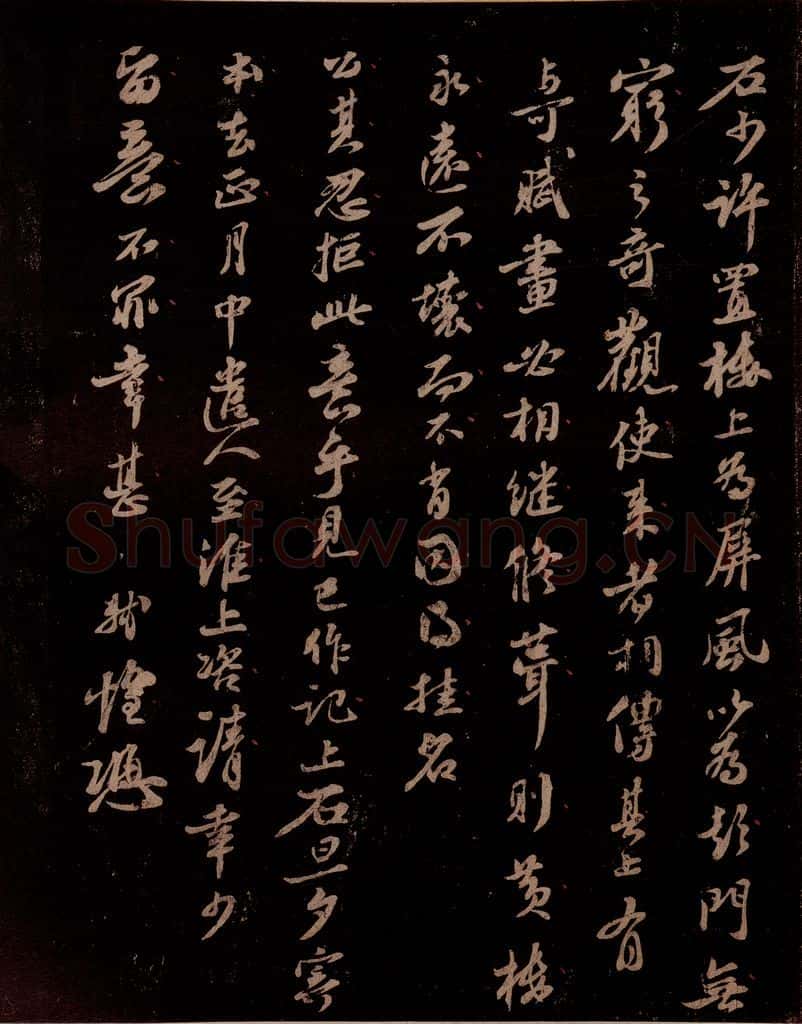 石少許置樓上為屏風以為彭門無
窮之奇觀使來者相傳其上有
与可賦畫必相継修葺則黃樓
永遠不壞而不肖因得挂名
公其忍拒此意乎見已作記上石旦夕寄
本去正月中遣人至淮上咨請幸少
留意不罪幸甚 軾惶恐
Shufawang.CN